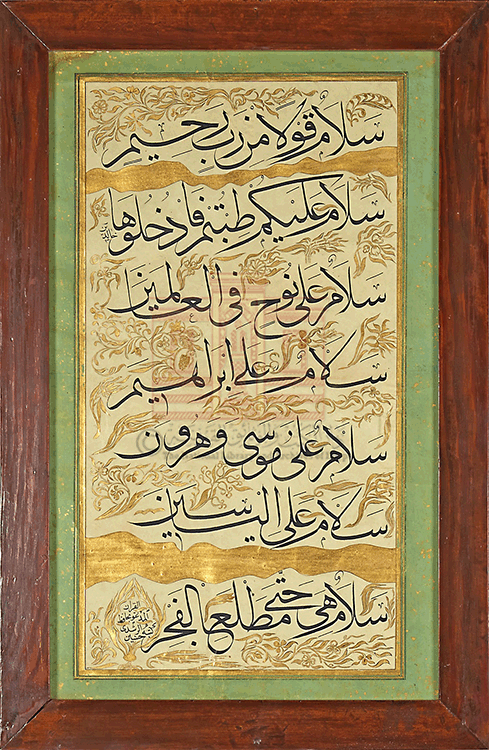 سلام قولا من رب رحيم
سلام عليكم طبتم فادخلوها
سلام على نوح فى العالمين
سلام على ابراهيم
سلام على موسى وهرون
سلام على الياسين
سلام هى حتى مطلع الفجر